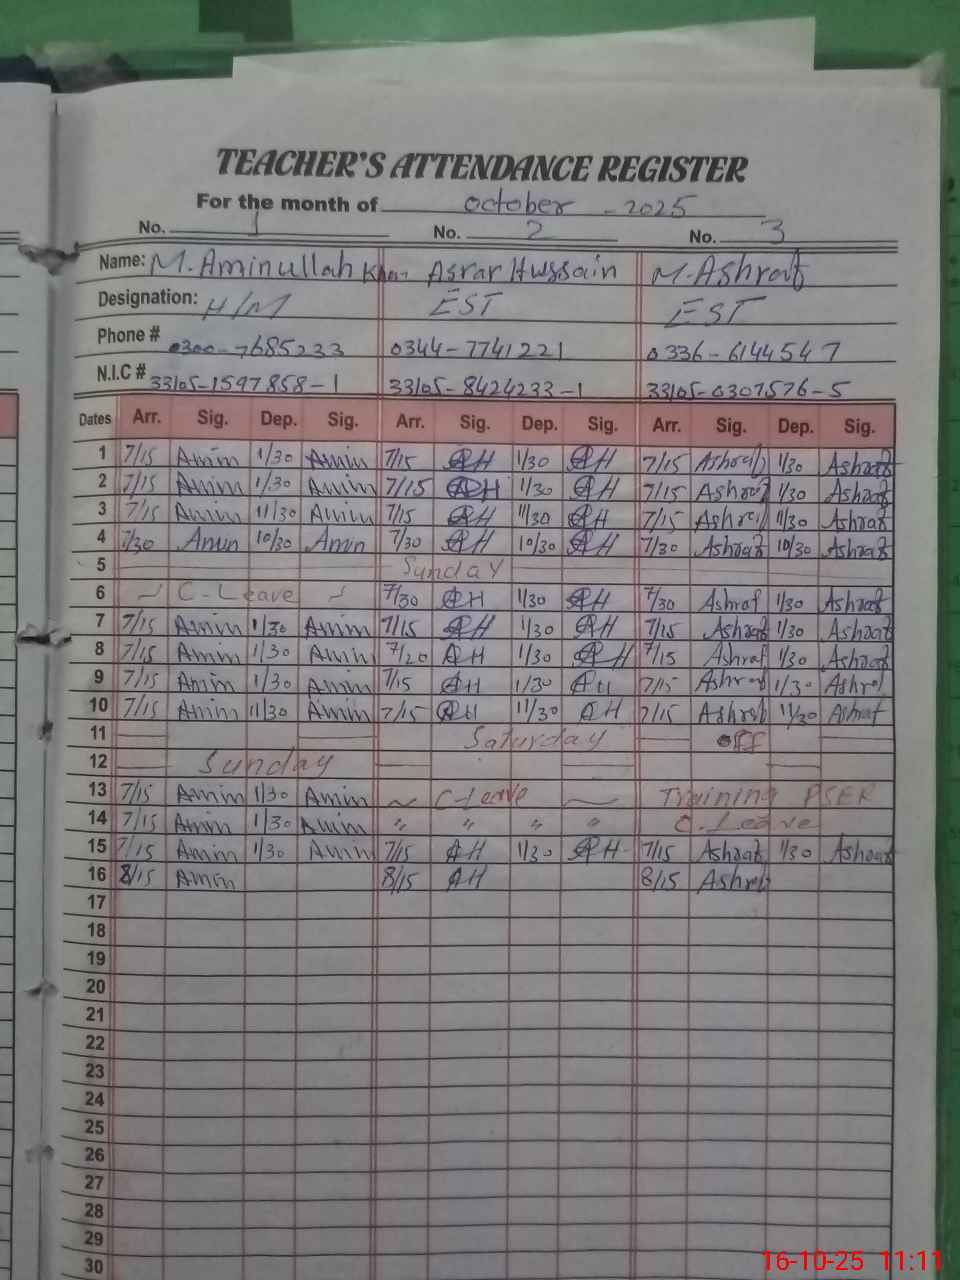 TEACHER'S ATTENDANCE REGISTER
For the month of October - 2025
No. 1 No. 2 No. 3
Name: M. Aminullah Khan Asrar Hussain M. Ashraf
Designation: H/M EST EST
Phone # 0300-7685233 0344-7741221 0336-6144547
N.I.C # 33105-1597858-1 33105-8424233-1 33105-0307576-5
Dates Arr. Sig. Dep. Sig. Arr. Sig. Dep. Sig. Arr. Sig. Dep. Sig.
1 7/15 Amin 1/30 Amin 7/15 AH 1/30 AH 7/15 Ashraf 1/30 Ashraf
2 7/15 Amin 1/30 Amin 7/15 AH 1/30 AH 7/15 Ashraf 1/30 Ashraf
3 7/15 Amin 11/30 Amin 7/15 AH 11/30 AH 7/15 Ashraf 11/30 Ashraf
4 7/30 Amin 10/30 Amin 7/30 AH 10/30 AH 7/30 Ashraf 10/30 Ashraf
5 Sunday
6 C-Leave 7/30 AH 1/30 AH 7/30 Ashraf 1/30 Ashraf
7 7/15 Amin 1/30 Amin 7/15 AH 1/30 AH 7/15 Ashraf 1/30 Ashraf
8 7/15 Amin 1/30 Amin 7/20 AH 1/30 AH 7/15 Ashraf 1/30 Ashraf
9 7/15 Amin 1/30 Amin 7/15 AH 1/30 AH 7/15 Ashraf 1/30 Ashraf
10 7/15 Amin 11/30 Amin 7/15 AH 11/30 AH 7/15 Ashraf 11/30 Ashraf
11 Saturday off
12 Sunday
13 7/15 Amin 1/30 Amin C-Leave Training PSER
14 7/15 Amin 1/30 Amin " " " " C-Leave
15 7/15 Amin 1/30 Amin 7/15 AH 1/30 AH 7/15 Ashraf 1/30 Ashraf
16 8/15 Amin 8/15 AH 8/15 Ashraf
17
18
19
20
21
22
23
24
25
26
27
28
29
30
16-10-25 11:11